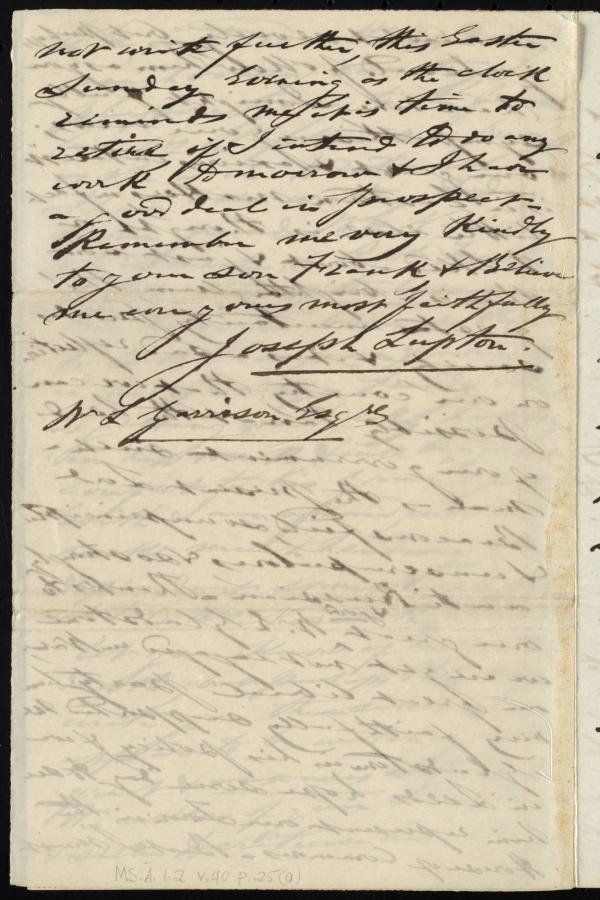 not write further, this Easter
Sunday Evening as the clock
reminds me it is time to
retire if I intend to do any
work tomorrow & I have
a good deal in prospect.
Remember me very kindly
to your son Frank & Believe
me ever yours most faithfully
Joseph Lupton.
Wm L Garrison Esqre
MS.A.1.2 v.40 p.25(a)